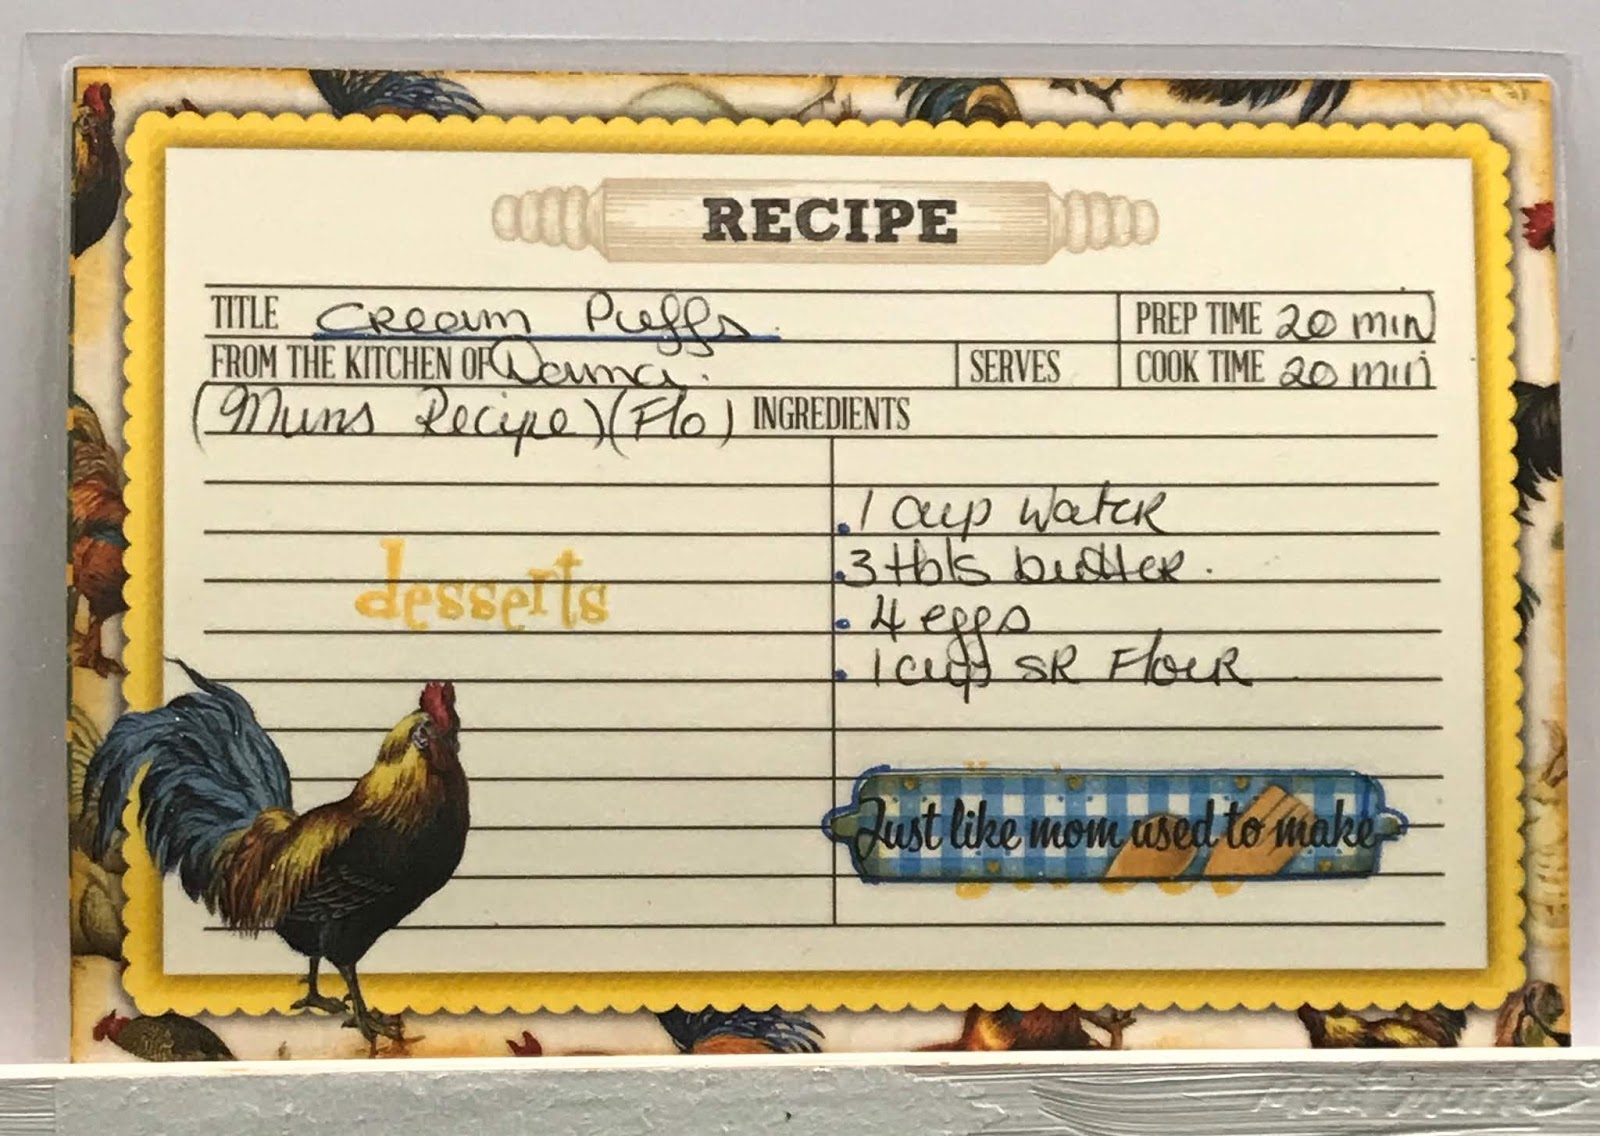 RECIPE
TITLE Cream Puffs.
PREP TIME 20 min
FROM THE KITCHEN OF
SERVES
COOK TIME 20 min
(Mums Recipe) (Flo) INGREDIENTS
. 1 cup water
. 3 tbls butter.
. 4 eggs
. 1 cup SR Flour
desserts
Just like mom used to make